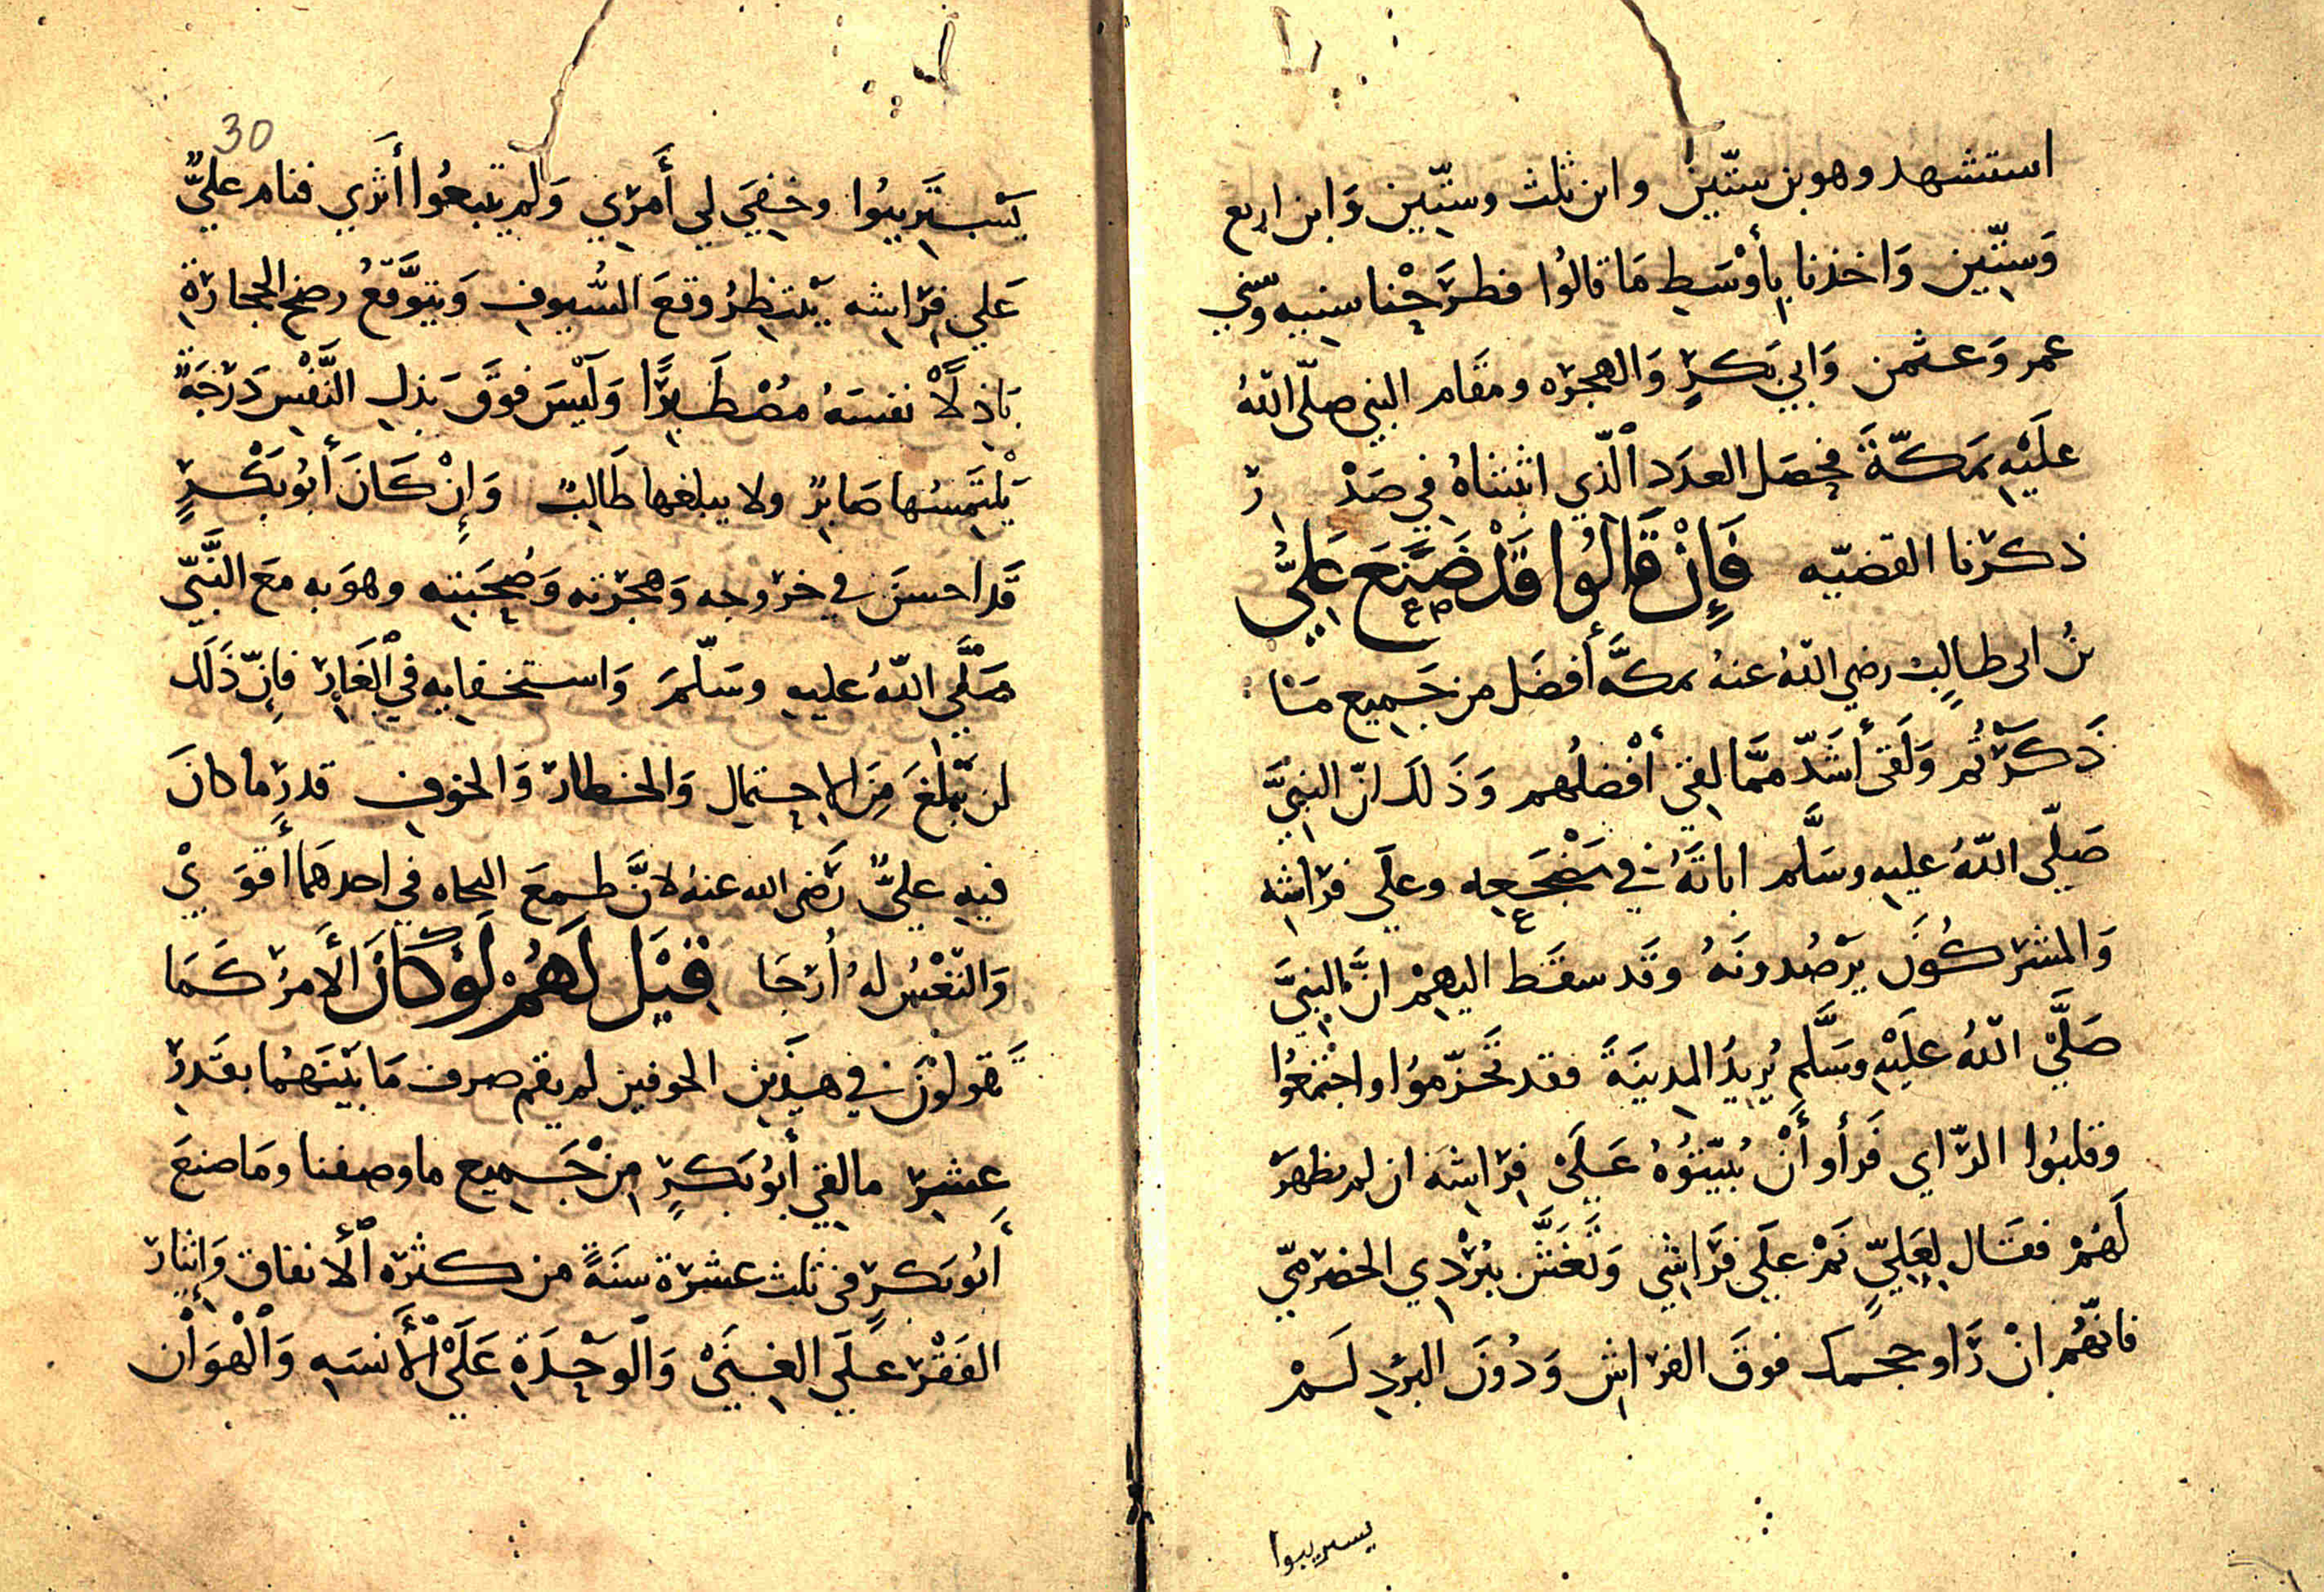 استشهد وهو بن ستّين وابن ثلث وستّين وَابن اربع
وَستّين وَاخذنا بِأوْسَطِ مَا قالُوا فطرَحْنا سنيه وَسني
عمر وَعثمن وَابي بَكرٍ وَالهجره ومقَام النبي صلّى اللّهُ
علَيْهِ بمَكّةَ فحصَل العدَد ٱلّذي اثبتناهُ في صَدْ رِ
ذكرنا القضيّه فَإِنْ قَالُوا قَدْ صَنَعَ عَلِيُّ
بنُ ابى طالبٍ رضي اللّهُ عنهُ بمكَّه أفضَل من جَميع مَا
ذَكَرْتُم وَلَقى أشَدّ ممَّا لقيَ أفْضلُهم وَذَلكَ انّ النبيَّ
صَلّى اللّهُ عليهِ وسَلَّم اباتَهُ في مَضْجَعِه وعلَى فرَاشه
وَالمشركُونَ يرْصُدونَهُ وقَد سقَط اليهِمْ انَّ النبيَّ
صَلَّىْ اللّهُ علَيْهِ وسَلَّم يُريدُ المدينَةَ فقد تَحَزّموُا واجْتمعُوا
وقلبُوا الرّاي فَرأو أَنْ يُبَيّتُوهُ عَلَىْ فِرَاشِه ان لم يظهَرْ
لَهُمْ فقَال لِعَلِيٍّ نَمْ علَى فرَاشِي وَتَغَشَّ ببُرْدي الحضرميّ
فانّهُم انْ رَاو حجمك فوقَ الفرَاشِ وَدُونَ البرْدِ لَمْ
يستريبوا
30
يَسْتَرِيبُوا وخفِيَ لي أَمرِي وَلم يتبعُوا أَثرِي فنام عليٌّ
عَلي فِرَاشه يَنتظِرُ وقعَ السُّيوفِ وَيتوَقّعُ رضخ الحجارَةِ
بَاذِلًا نفسَهُ مُصْطَبِرًا وَلَيْسَ فوقَ بَذلِ النَّفْسِ دَرَجَةٌ
يَلْتَمِسُها صَابرٌ ولا يبلغها طَالِبٌ وَإِنْ كَانَ أَبُو بَكْرٍ
قَد احسنَ في خرُوجه وَهجرَته وَصُحْبَته وهوَ به معَ النَّبيّ
صَلَّى اللّهُ عليهِ وسَلّمَ وَاستخفايه في ٱلغَارِ فإِنّ ذَلَك
لن يَبْلغَ مِنَ الاِحتمال وَالخطار وَالخوفِ قدرِ ما كانَ
فيهِ عليٌّ رَضى الله عنهُ لانَّ طمعَ النجاه في احدهَما أَقوَىْ
وَالنّفْسُ لهُ أرْجَا قِيْلَ لَهُمْ لَوْ كَانَ الأَمرُ كَمَا
تَقولوْنَ في هذَين الخوفين لم يقم صرف مَا بَيْنَهُما بقَدرِ
عِشرِ مالقي أَبُو بَكرٍ مِنْ جَميع ما وصفنا ومَا صنعَ
أَبُو بكرٍ في ثلث عشرَة سنَةً من كثرَه ٱلأنفاق وَإيثار
الفَقرْ عَلَى الغنَىْ وَٱلوَحْدَةِ عَلَىْ ٱلْأَنسَهِ وَٱلْهوَاْن